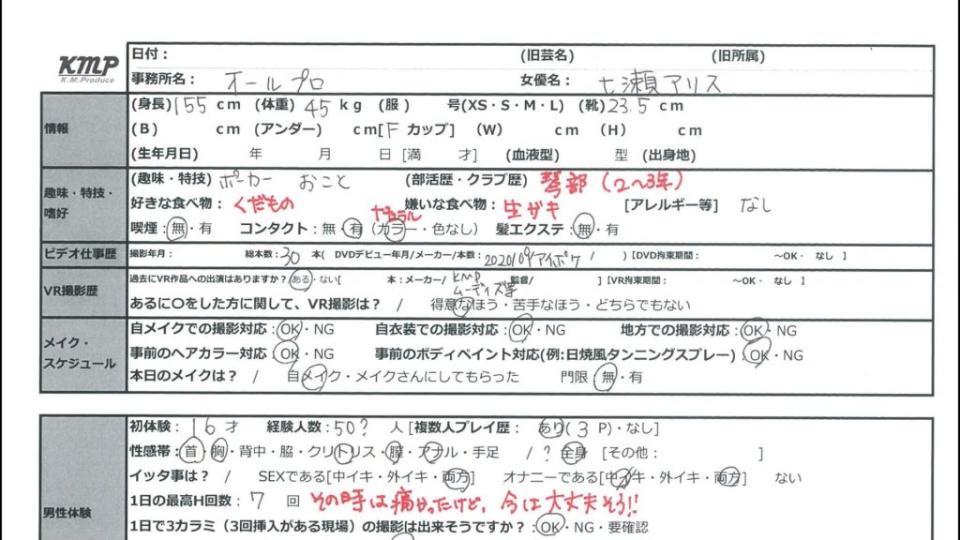 KMP
K.M.Produce
日付： (旧芸名) (旧所属)
事務所名： オールプロ 女優名： 七瀬アリス
情報
(身長)155 cm (体重) 45 kg (服) 号(XS・S・M・L) (靴)23.5 cm
(B) cm (アンダー) cm[F カップ] (W) cm (H) cm
(生年月日) 年 月 日 [満 才] (血液型) 型 (出身地)
趣味・特技・嗜好
(趣味・特技) ポーカー おこと (部活歴・クラブ歴) 琴部 (2～3年)
好きな食べ物： くだもの 嫌いな食べ物： 生ガキ [アレルギー等] なし
喫煙：無・有 コンタクト：無・有 (カラー・色なし) ナチュラル 髪エクステ：無・有
ビデオ仕事歴
撮影年月： 総本数：30 本( DVDデビュー年月/メーカー/本数：2020/09/アイポケ / ) [DVD拘束期間： ～OK・ なし ]
VR撮影歴
過去にVR作品への出演はありますか？ ある・ない[ 本：メーカー/ KMP ムーディズ等 監督/ ] [VR拘束期間： ～OK・ なし ]
あるに○をした方に関して、VR撮影は？ / 得意なほう・苦手なほう・どちらでもない
メイク・スケジュール
自メイクでの撮影対応：OK・NG 自衣装での撮影対応：OK・NG 地方での撮影対応：OK・NG
事前のヘアカラー対応：OK・NG 事前のボディペイント対応(例:日焼風タンニングスプレー) OK・NG
本日のメイクは？ / 自メイク・メイクさんにしてもらった 門限：無・有
男性体験
初体験：16 才 経験人数：50？ 人 [複数人プレイ歴： あり(3 P)・なし]
性感帯：首・胸・背中・脇・クリトリス・膣・アナル・手足 /？ 全身 [その他： ]
イッタ事は？ / SEXである[中イキ・外イキ・両方] オナニーである[中イキ・外イキ・両方] ない
1日の最高H回数：7 回 その時は痛かったけど、今は大丈夫そう!!
1日で3カラミ（3回挿入がある現場）の撮影は出来そうですか？：OK・NG・要確認